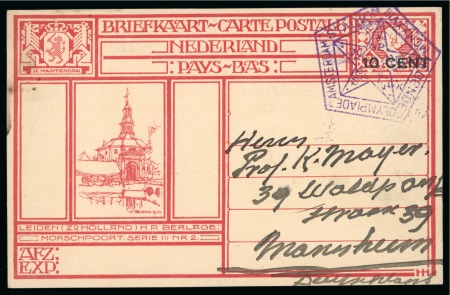 BRIEFKAART~CARTE POSTALE
NEDERLAND
PAYS~BAS
JE MAINTIENDRAI
10 CENT
AMSTERDAM
OLYMPIADE
Herrn
Prof. K. Mayer.
39
39
Mannheim
Deutschland
LEIDEN (ZD HOLLAND) H.P. BERLAGE:
MORSCHPOORT SERIE III NR 2.
AFZ.
EXP.